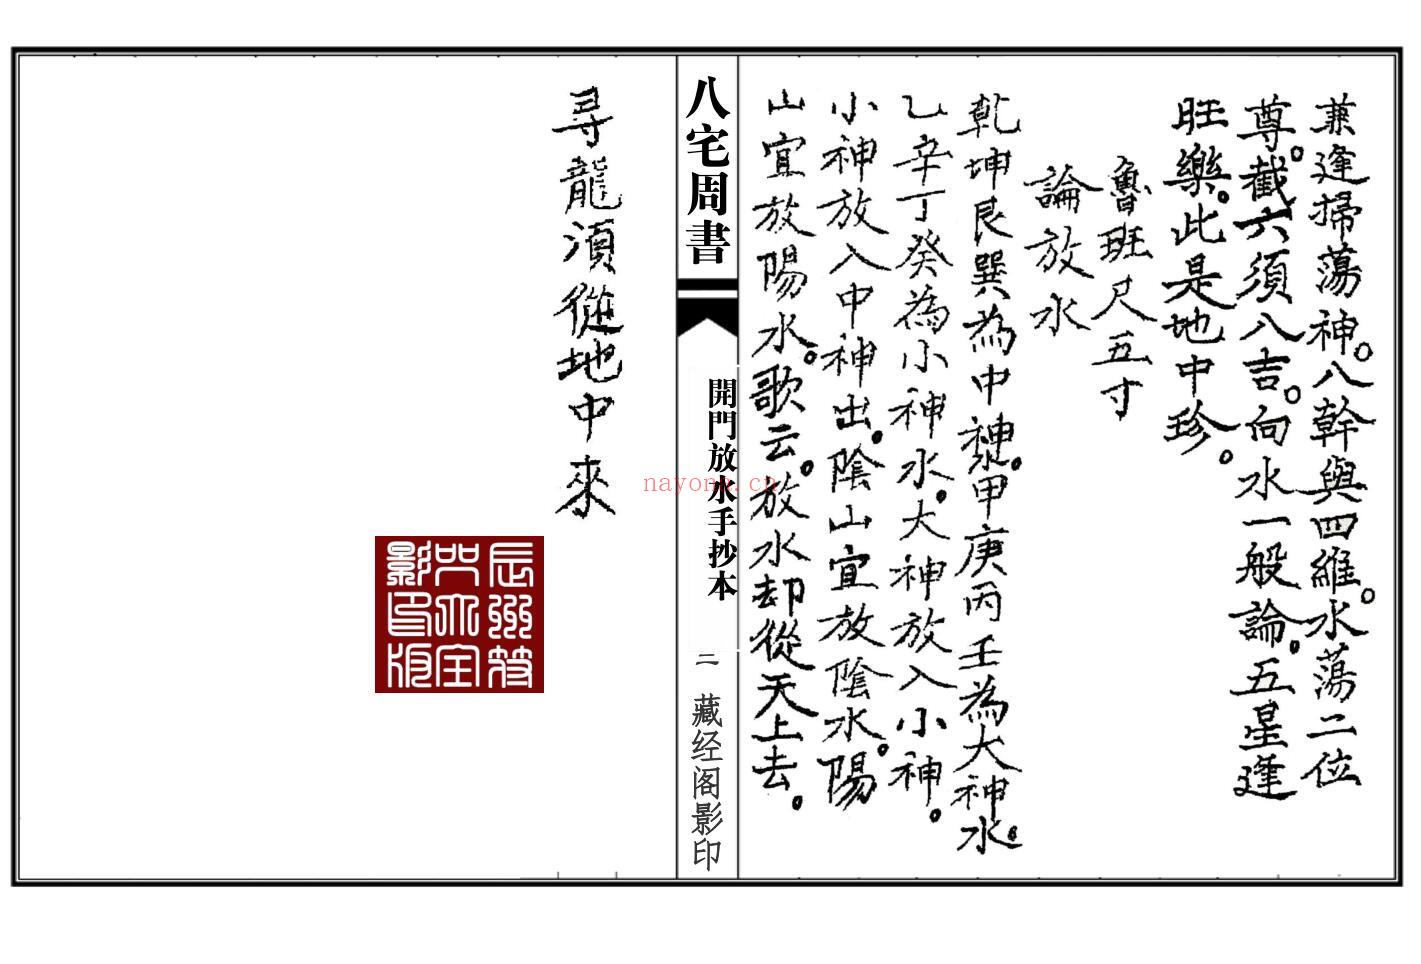 兼逢掃蕩神。八幹與四維。水蕩二位
尊。截六須八吉。向水一般論。五星逢
旺樂。此是地中珍。
魯班尺五寸
論放水
乾坤艮巽為中神。甲庚丙壬為大神水。
乙辛丁癸為小神水。大神放入小神。
小神放入中神出。陰山宜放陰水。陽
山宜放陽水。歌云。放水却從天上去。
八宅周書
開門放水手抄本
三
藏经阁影印
尋龍須從地中來
nayona.cn